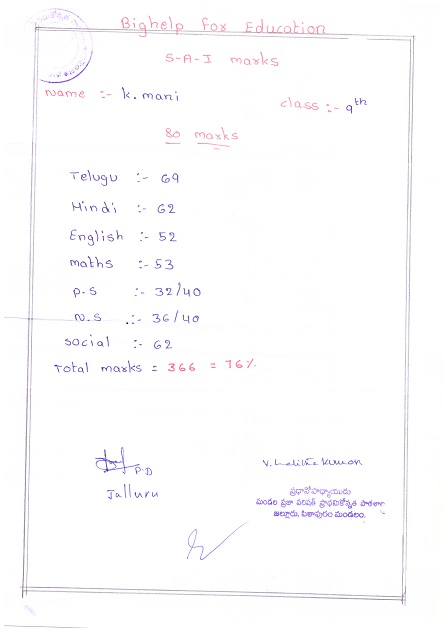 Bighelp for Education
S-A-I marks
Name :- K. mani
class :- 9th
80 marks
Telugu :- 69
Hindi :- 62
English :- 52
maths :- 53
P.S :- 32/40
N.S :- 36/40
social :- 62
Total marks = 366 = 76%
P.D
Jalluru
ప్రధానోపాధ్యాయుడు
మండల ప్రజా పరిషత్ ప్రాథమికోన్నత పాఠశాల
జల్లూరు, పిఠాపురం మండలం.